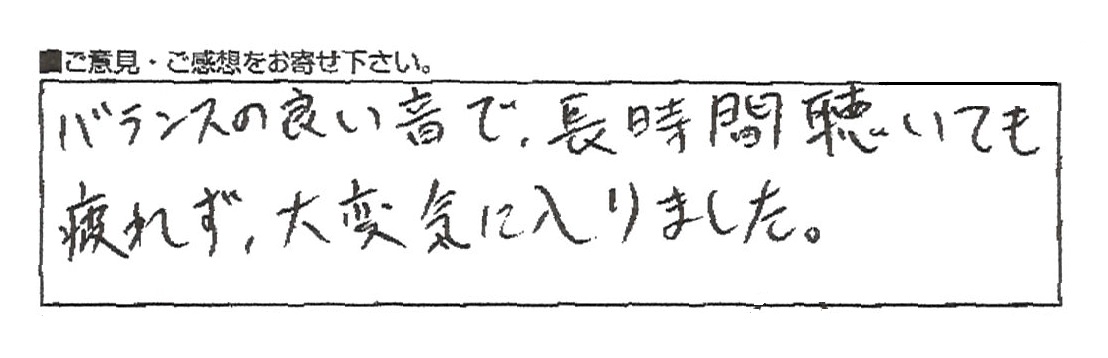 ■ご意見・ご感想をお寄せ下さい。
バランスの良い音で、長時間聴いても
疲れず、大変気に入りました。